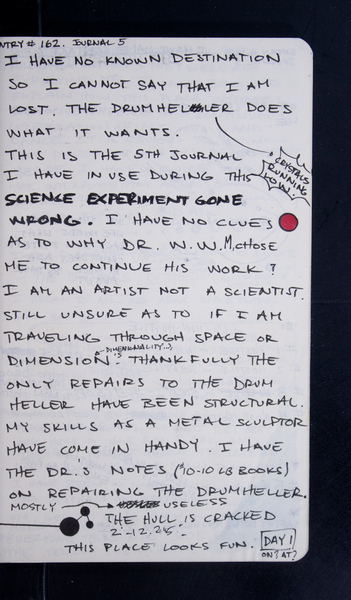 ENTRY # 162. JOURNAL 5
I HAVE NO KNOWN DESTINATION
SO I CANNOT SAY THAT I AM
LOST. THE DRUMHELLER DOES
WHAT IT WANTS.
THIS IS THE 5TH JOURNAL
I HAVE IN USE DURING THIS
CRYSTALS
RUNNING
LOW.
SCIENCE EXPERIMENT GONE
WRONG. I HAVE NO CLUES
AS TO WHY DR. W.W.M. CHOSE
ME TO CONTINUE HIS WORK?
I AM AN ARTIST NOT A SCIENTIST.
STILL UNSURE AS TO IF I AM
TRAVELING THROUGH SPACE OR
DIMENSION. THANKFULLY THE
ONLY REPAIRS TO THE DRUM
HELLER HAVE BEEN STRUCTURAL.
MY SKILLS AS A METAL SCULPTOR
HAVE COME IN HANDY. I HAVE
THE DR.'S NOTES (10-10 LB BOOKS)
ON REPAIRING THE DRUMHELLER.
MOSTLY USELESS
THE HULL IS CRACKED
THIS PLACE LOOKS FUN.
DAY 1